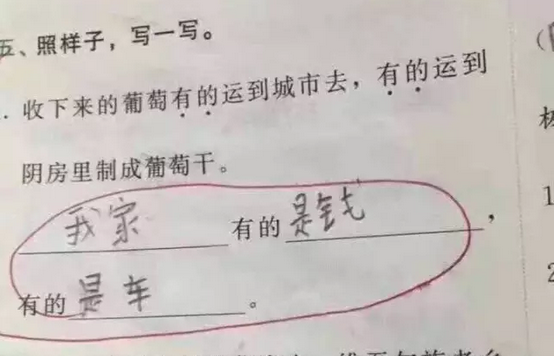 五、照样子，写一写。
收下来的葡萄有的运到城市去，有的运到
阴房里制成葡萄干。
我家有的是钱，
有的是车。